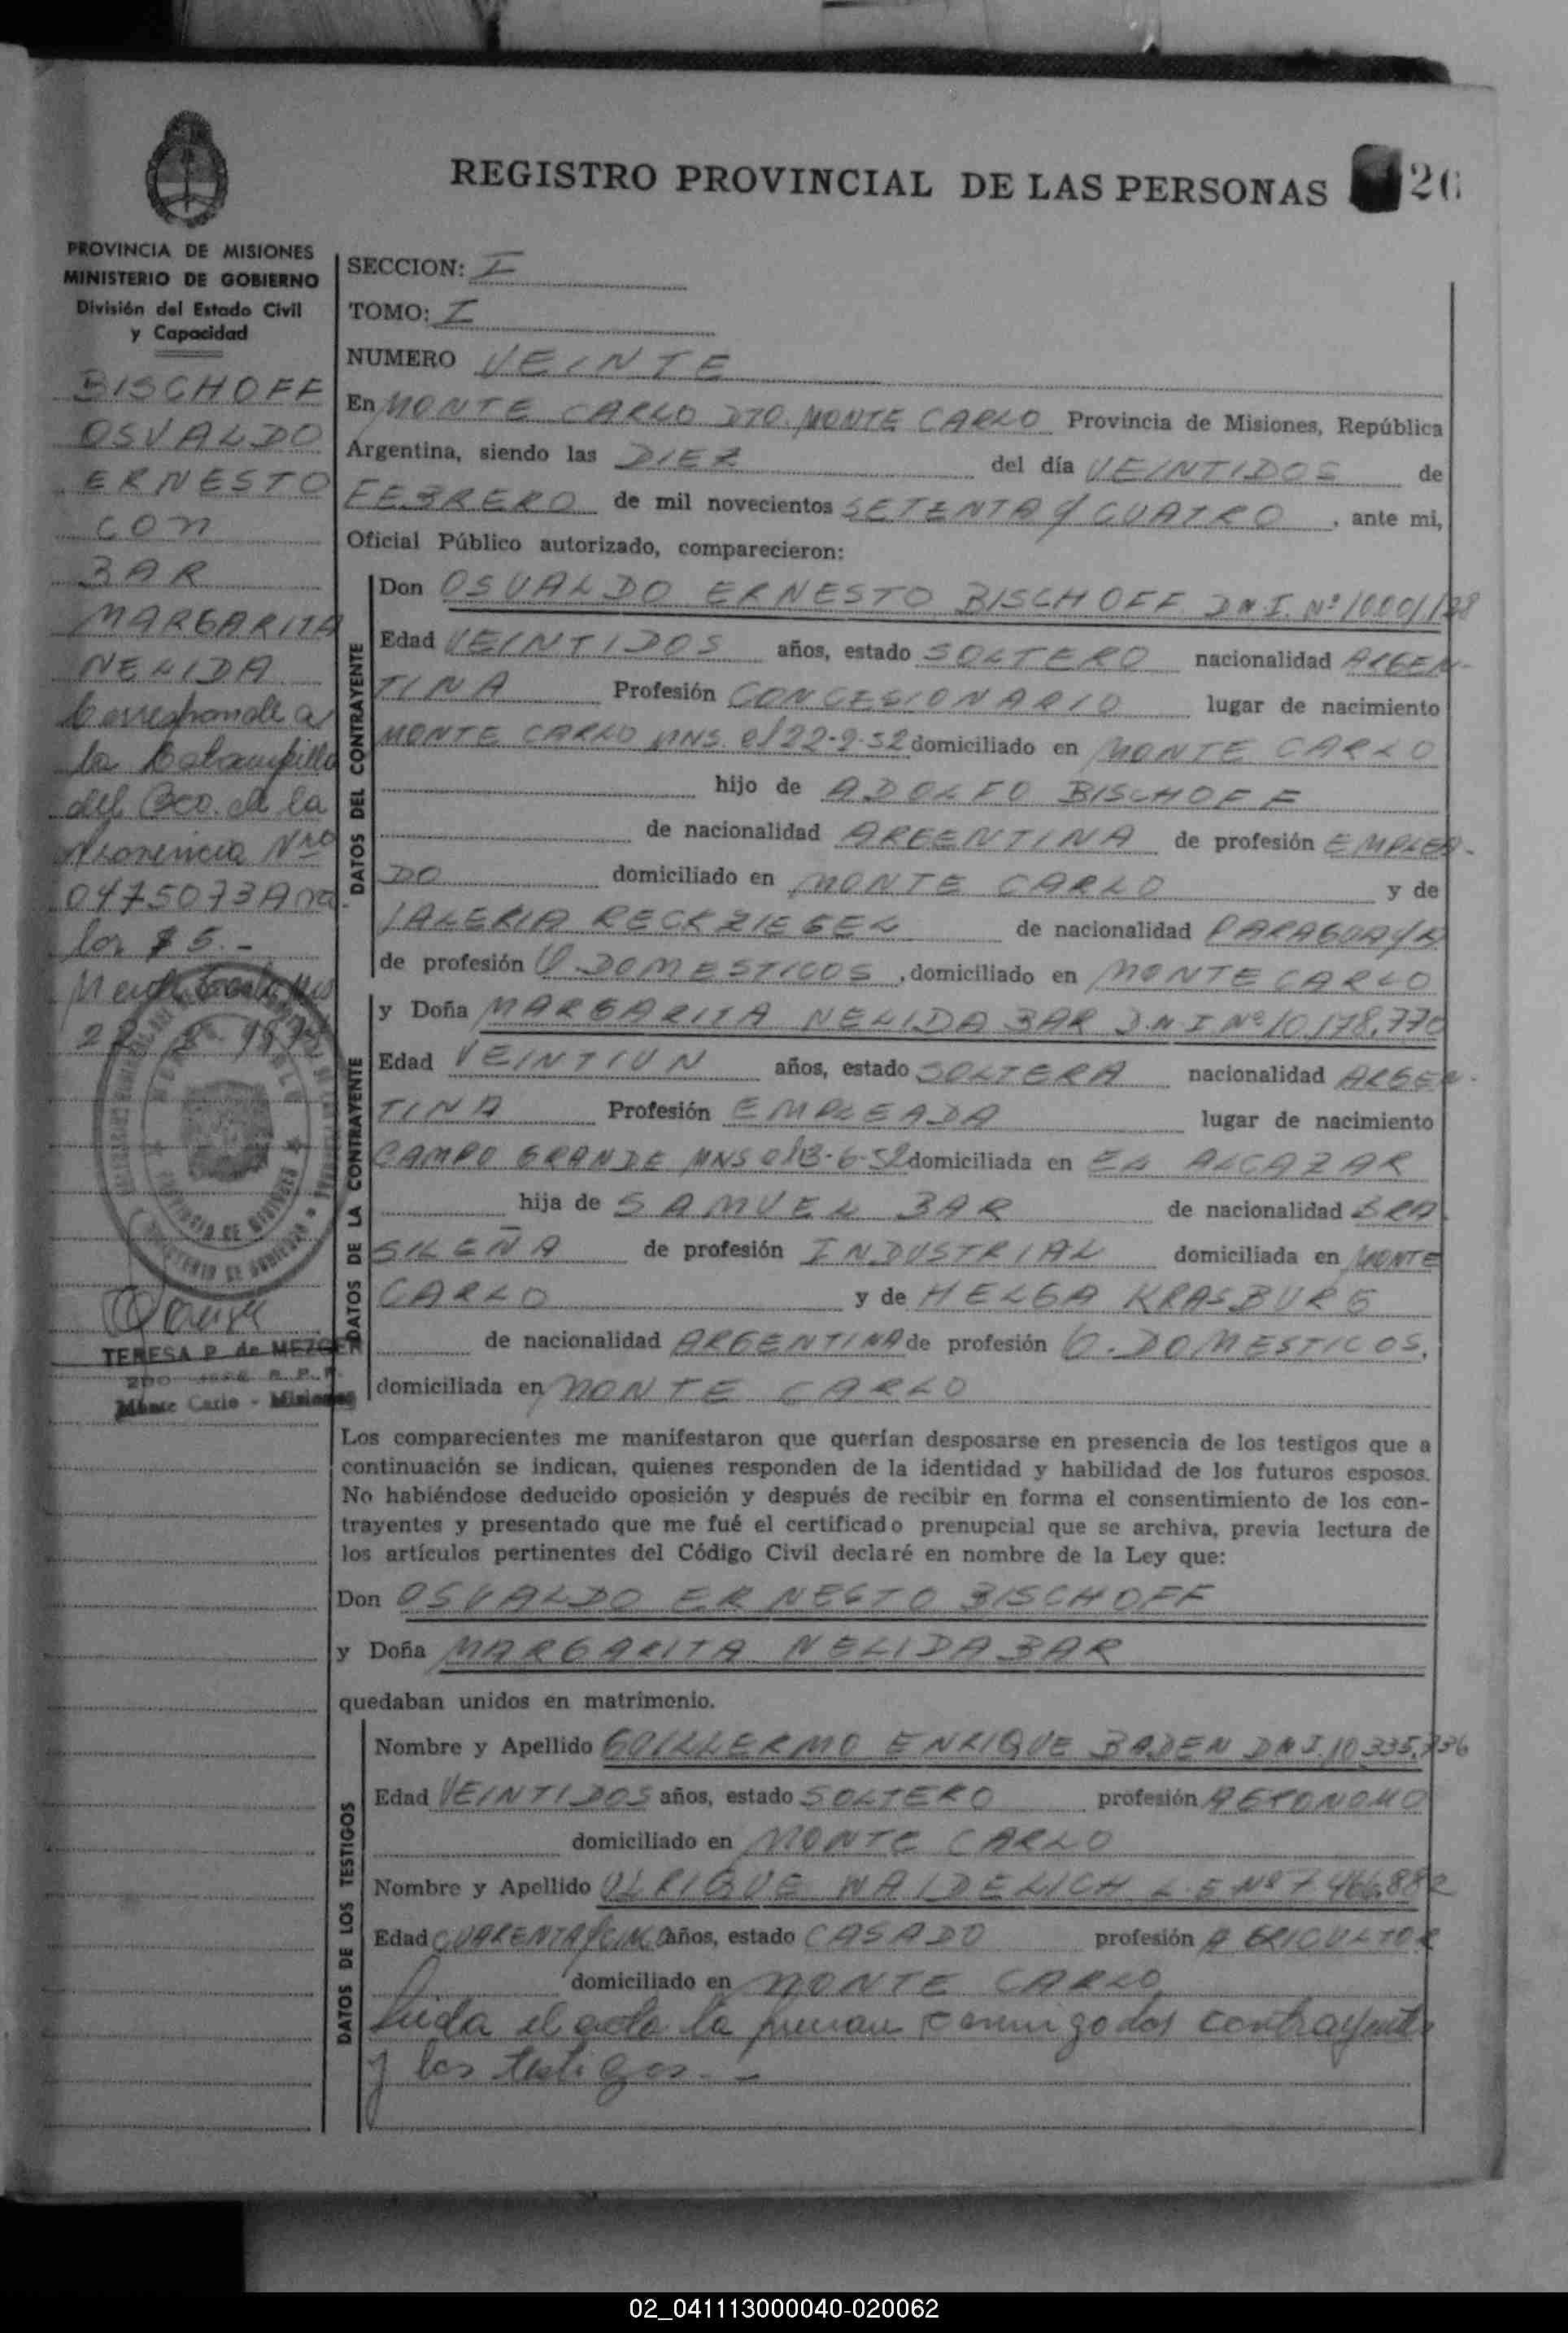 REGISTRO PROVINCIAL DE LAS PERSONAS
26
PROVINCIA DE MISIONES
MINISTERIO DE GOBIERNO
División del Estado Civil
y Capacidad
BISCHOFF
OSVALDO
ERNESTO
CON
BAR
MARGARITA
NELIDA
Corresponde a
la Estampilla
del Bco. de la
Provincia Nro
0475073A
por $ 5.-
TERESA P. de MEZGER
Monte Carlo - Misiones
SECCION: I
TOMO: I
NUMERO VEINTE
En MONTE CARLO DTO. MONTE CARLO Provincia de Misiones, República
Argentina, siendo las DIEZ del día VEINTIDOS de
FEBRERO de mil novecientos SETENTA Y CUATRO, ante mi,
Oficial Público autorizado, comparecieron:
DATOS DEL CONTRAYENTE
Don OSVALDO ERNESTO BISCHOFF D N I. Nº 10.001.128
Edad VEINTIDOS años, estado SOLTERO nacionalidad ARGEN-
TINA Profesión CONCESIONARIO lugar de nacimiento
MONTE CARLO MNS. el 22-2-52 domiciliado en MONTE CARLO
hijo de ADOLFO BISCHOFF
de nacionalidad ARGENTINA de profesión EMPLEA-
DO domiciliado en MONTE CARLO y de
VALERIA RECKZIEGEL de nacionalidad PARAGUAYA
de profesión Q. DOMESTICOS, domiciliado en MONTE CARLO
DATOS DE LA CONTRAYENTE
y Doña MARGARITA NELIDA BAR D.N I Nº 10.178.770
Edad VEINTIUN años, estado SOLTERA nacionalidad ARGEN-
TINA Profesión EMPLEADA lugar de nacimiento
CAMPO GRANDE MNS el 13-6-52 domiciliada en EL ALCAZAR
hija de SAMUEL BAR de nacionalidad BRA
SILEÑA de profesión INDUSTRIAL domiciliada en MONTE
CARLO y de HELGA KRASBURG
de nacionalidad ARGENTINA de profesión Q. DOMESTICOS,
domiciliada en MONTE CARLO
Los comparecientes me manifestaron que querían desposarse en presencia de los testigos que a
continuación se indican, quienes responden de la identidad y habilidad de los futuros esposos.
No habiéndose deducido oposición y después de recibir en forma el consentimiento de los con-
trayentes y presentado que me fué el certificado prenupcial que se archiva, previa lectura de
los artículos pertinentes del Código Civil declaré en nombre de la Ley que:
Don OSVALDO ERNESTO BISCHOFF
y Doña MARGARITA NELIDA BAR
quedaban unidos en matrimonio.
DATOS DE LOS TESTIGOS
Nombre y Apellido GUILLERMO ENRIQUE BADEN DNI 10.335.736
Edad VEINTIDOS años, estado SOLTERO profesión AGRONOMO
domiciliado en MONTE CARLO
Nombre y Apellido ULRIQUE WAIDELICH L. E Nº 7.466.882
Edad CUARENTA Y CINCO años, estado CASADO profesión AGRICULTOR
domiciliado en MONTE CARLO
Leida el acta la firman conmigo los contrayentes
y los testigos.-
02_041113000040-020062